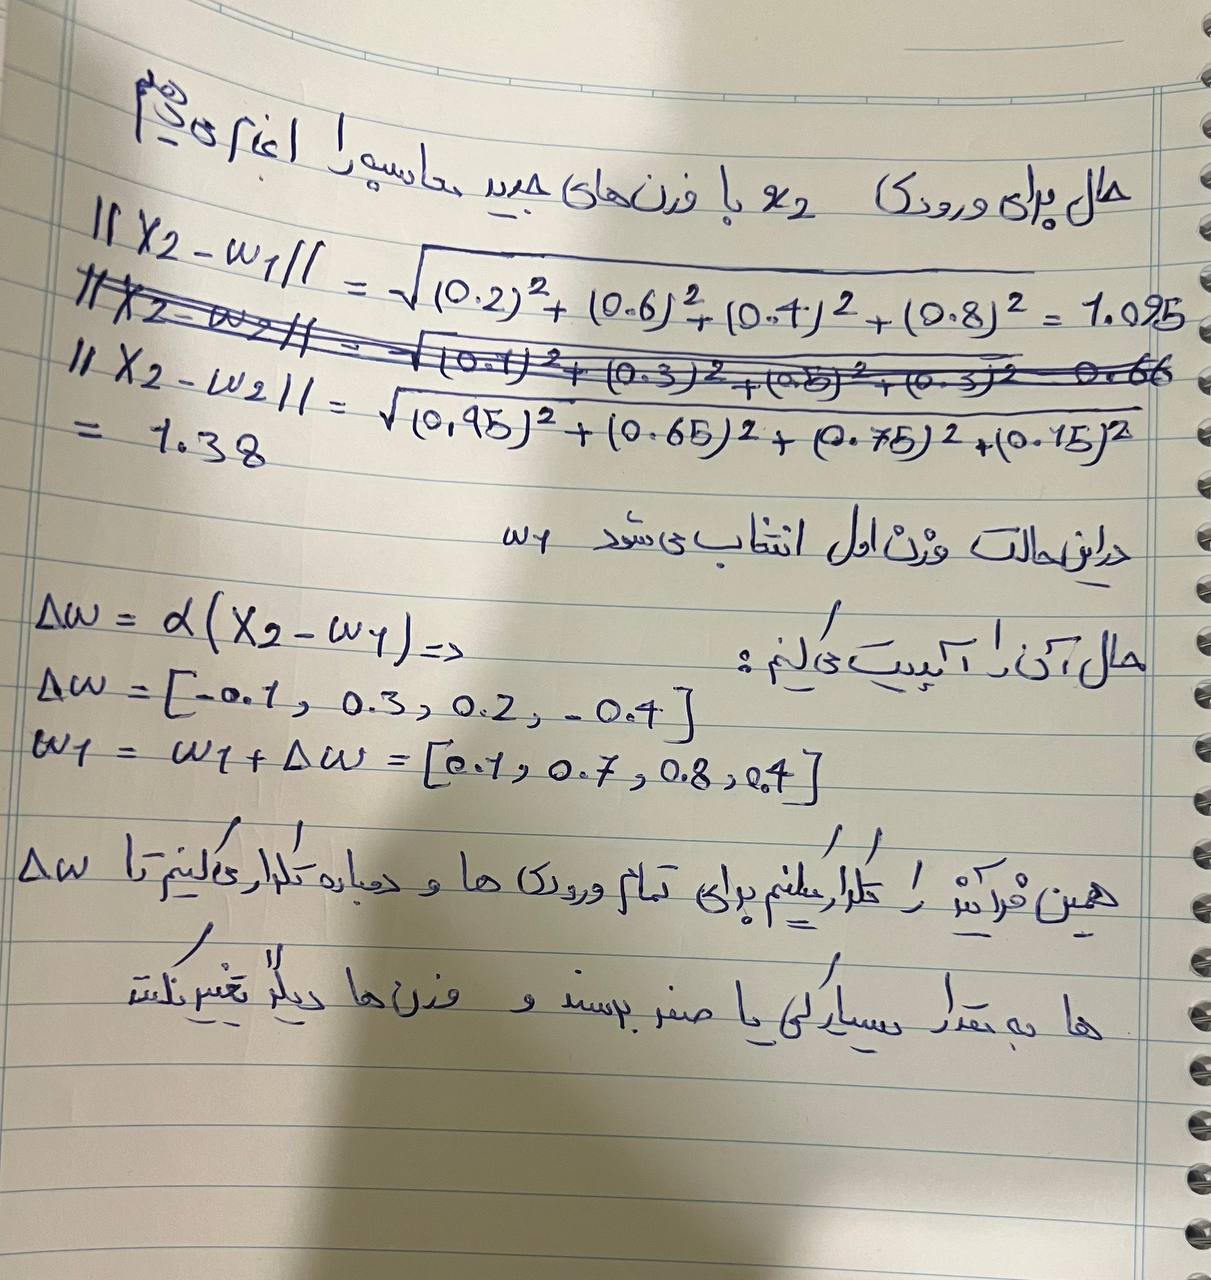 حال برای ورودی x2 با وزن‌های جدید محاسبه را انجام می‌دهیم
||X2 - w1|| = √(0.2)² + (0.6)² + (0.4)² + (0.8)² = 1.095
||X2 - w2|| = √(0.1)² + (0.3)² + (0.5)² + (0.3)² = 0.66
||X2 - w2|| = √(0.95)² + (0.65)² + (0.75)² + (0.15)²
= 1.38
در این حالت وزن اول انتخاب می‌شود w1
حال آن را آپدیت می‌کنیم:
Δw = α(X2 - w1) =>
Δw = [-0.1, 0.3, 0.2, -0.4]
w1 = w1 + Δw = [0.1, 0.7, 0.8, 0.4]
همین فرآیند را تکرار میکنیم برای تمام ورودی ها و دوباره تکرار می‌کنیم تا Δw
ها به مقدار بسیار کمی یا صفر برسند و وزن ها دیگر تغییر نکنند